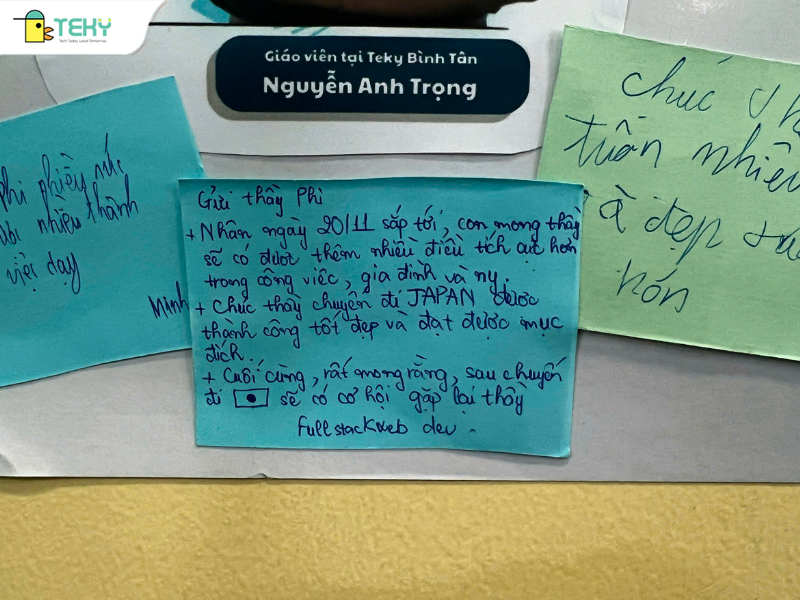 TEKY
Tech Today, Lead Tomorrow
Giáo viên tại Teky Bình Tân
Nguyễn Anh Trọng
phi nhiều sức
nhiều thành
việc dạy
Minh
Gửi thầy Phi
+ Nhân ngày 20/11 sắp tới, con mong thầy
sẽ có được thêm nhiều điều tích cực hơn
trong công việc, gia đình và ny.
+ Chúc thầy chuyến đi JAPAN được
thành công tốt đẹp và đạt được mục
đích.
+ Cuối cùng, rất mong rằng, sau chuyến
đi sẽ có cơ hội gặp lại thầy
Fullstackweb dev.
chúc
tuân nhiều
à đẹp
hón